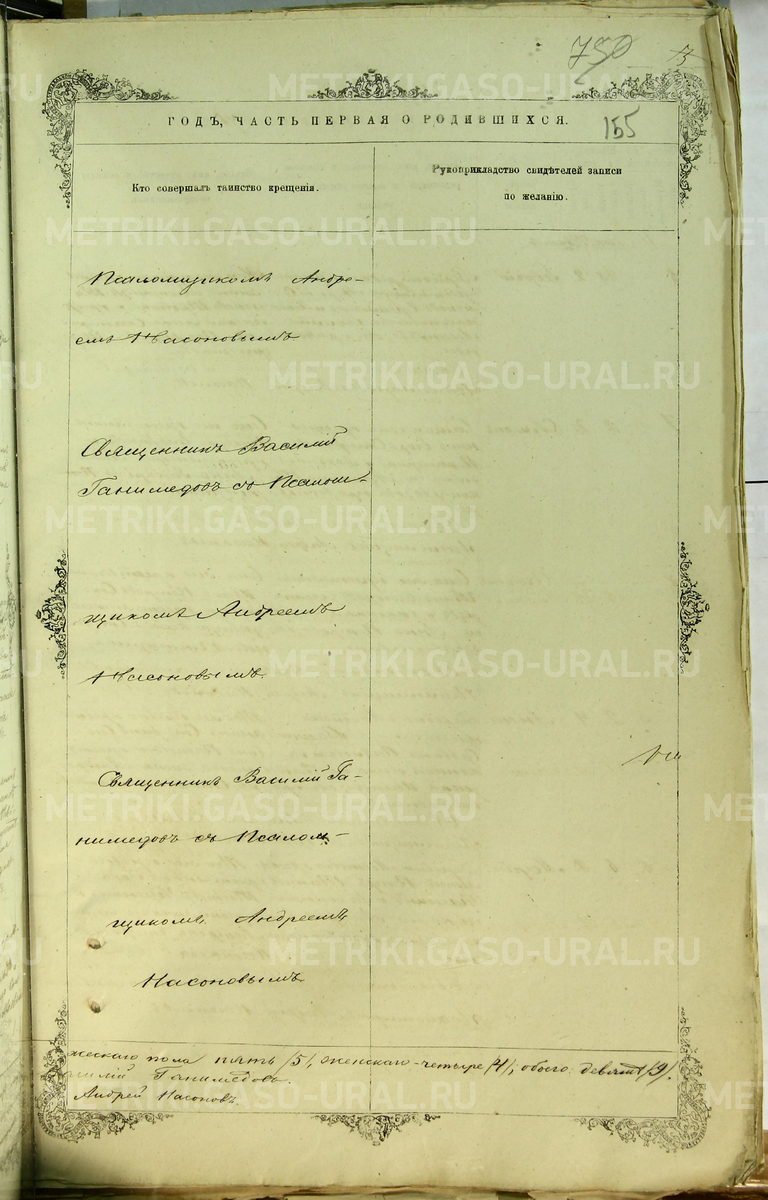 750
155
ГОДЪ, ЧАСТЬ ПЕРВАЯ О РОДИВШИХСЯ.
Кто совершалъ таинство крещенія.
Рукоприкладство свидѣтелей записи
по желанію.
Псаломщикомъ Андре-
емъ Насоновымъ
Священникъ Василій
Ганимедовъ съ Псалом-
щикомъ Андреемъ
Насоновымъ
Священникъ Василій Га-
нимедовъ съ Псалом-
щикомъ Андреемъ
Насоновымъ
жескаго пола пять /5/, женскаго-четыре /4/, обоего девять /9/.
силій Ганимедовъ.
Андрей Насоновъ
METRIKI.GASO-URAL.RU